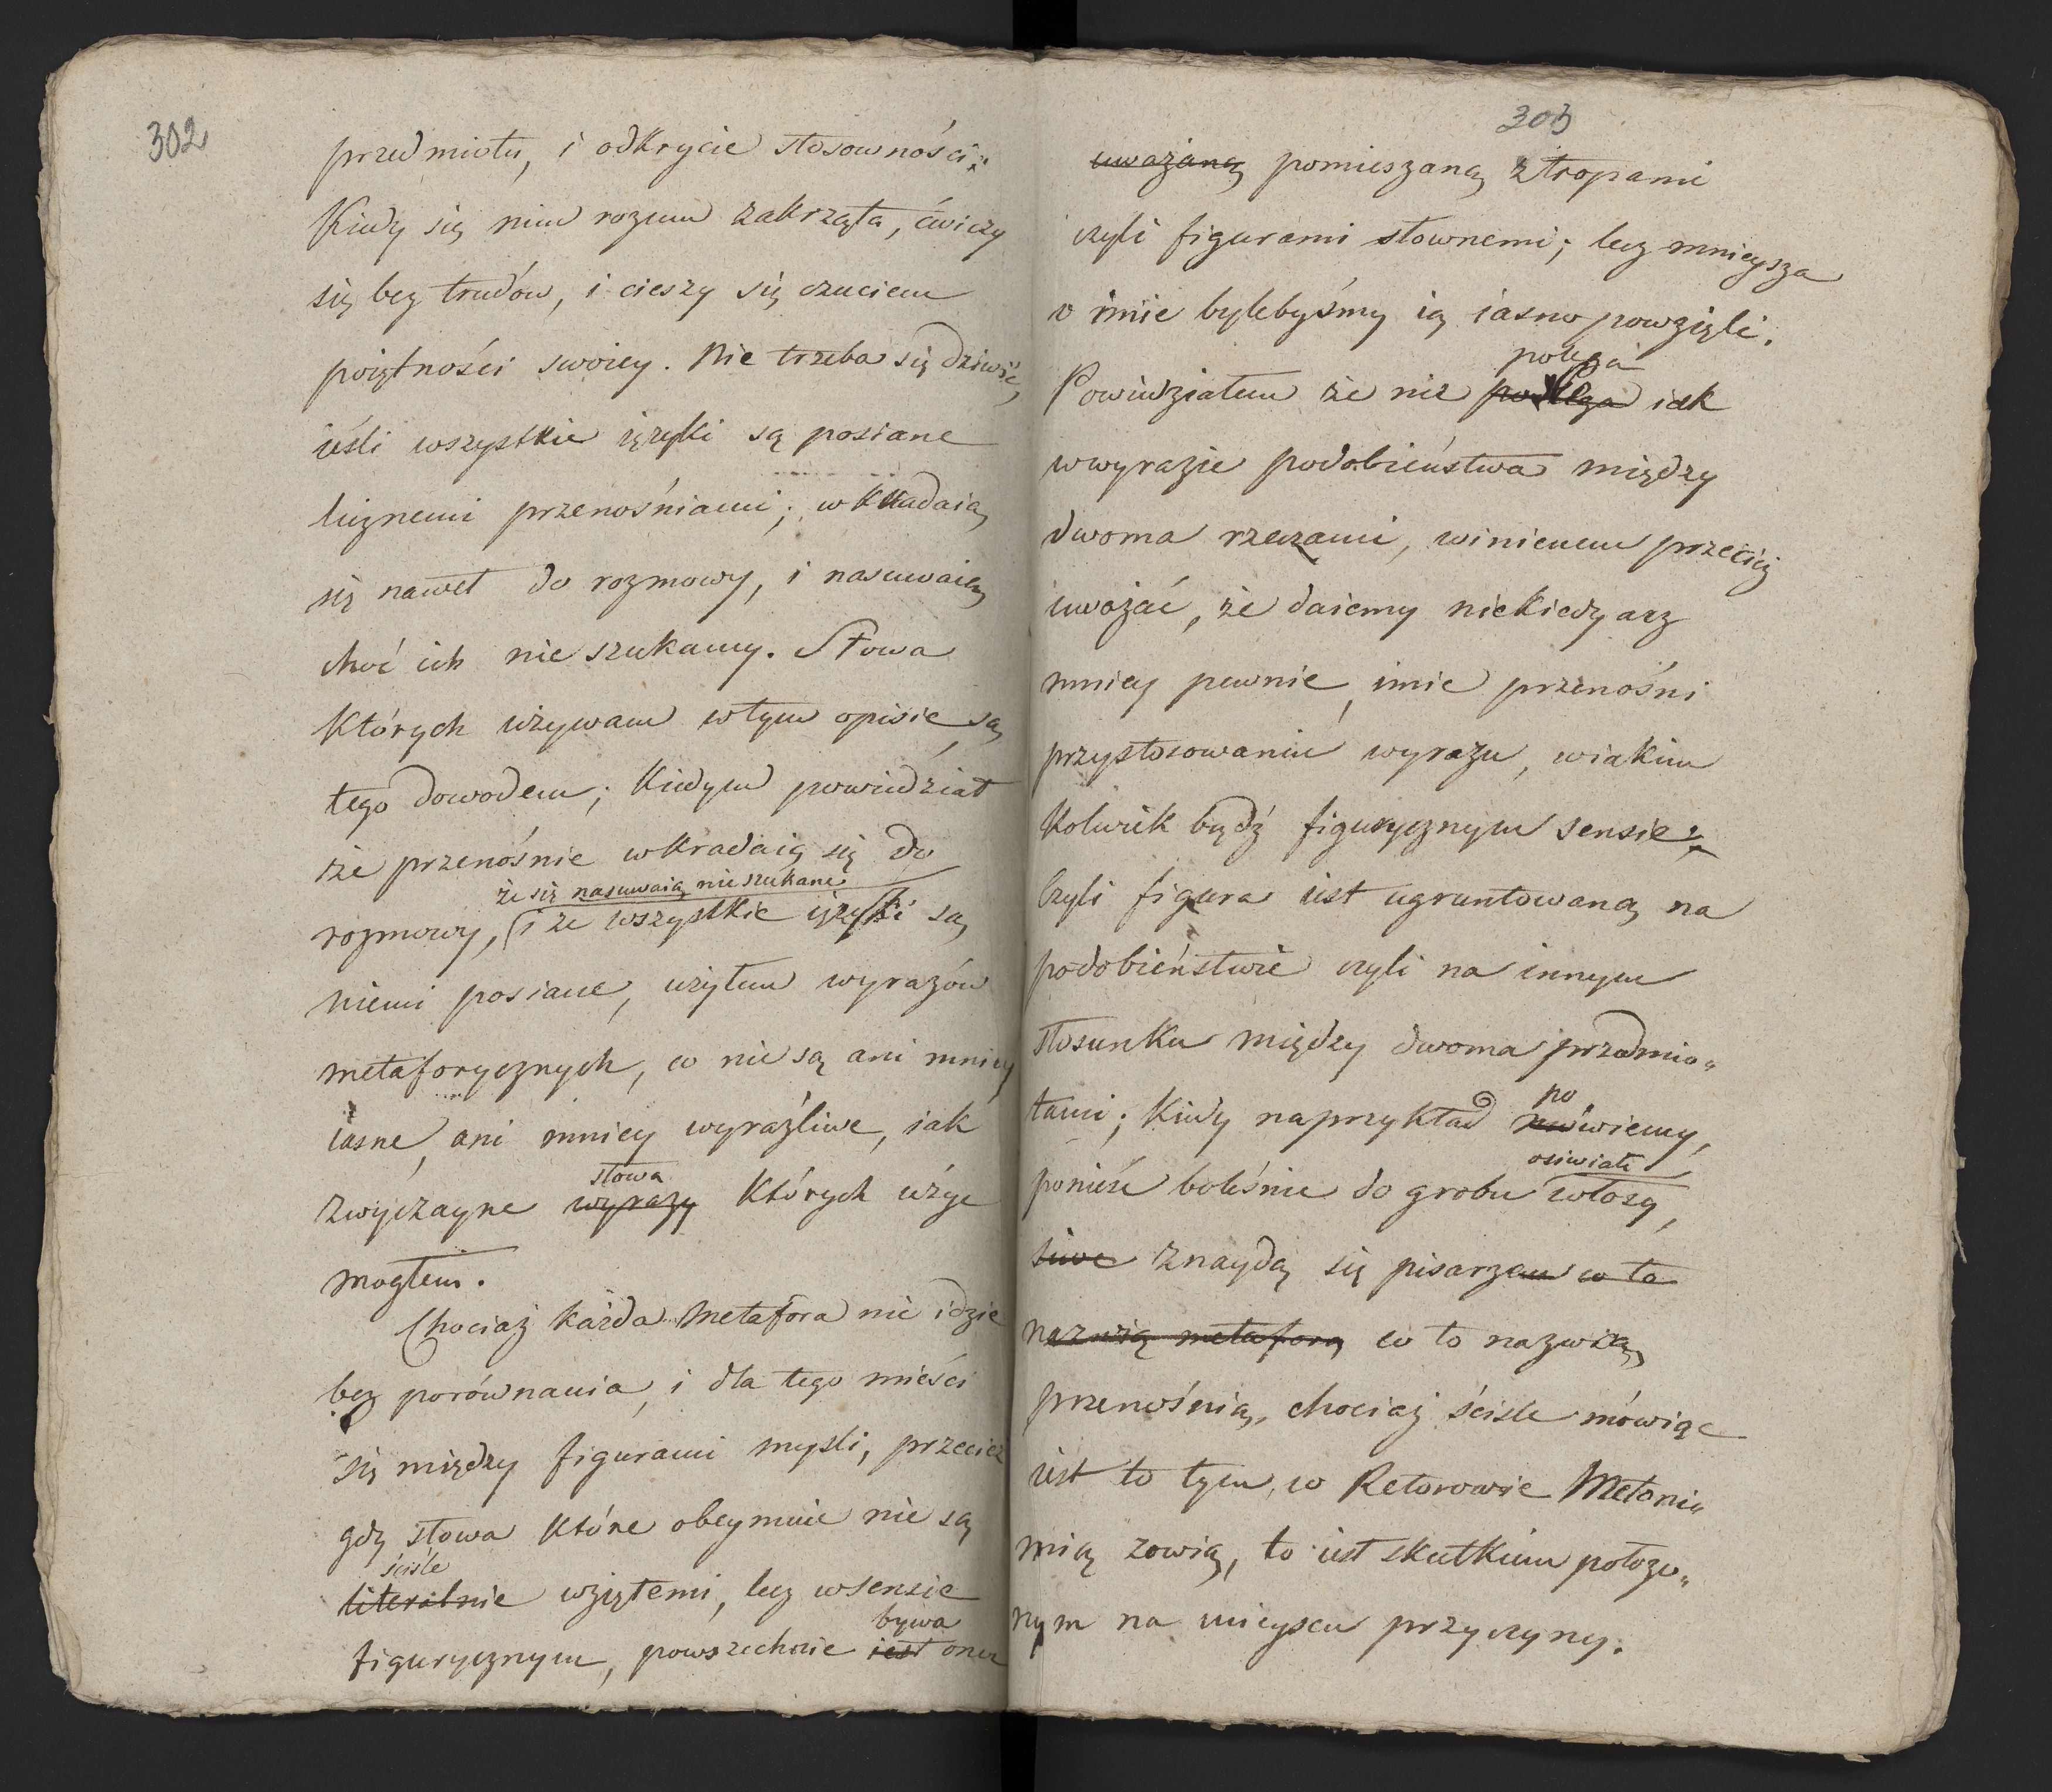 302
przedmiotu, i odkrycie stosowności;
Kiedy się niem rozum zakrząta, ćwiczy
się bez trudów, i cieszy się czuciem
poiętności swoiey. Nie trzeba się dziwić,
ieśli wszystkie ięzyki są posiane
liźnemi przenośniami; wkradaią
się nawet do rozmowy, i nasuwaią
choć ich nie szukamy. Słowa
których używam wtym opisie są
tego dowodem; Kiedym powiedział
że przenośnie wkradaią się do
że się nasuwaią nie szukane
rozmowy, i że wszystkie ięzyki są
niemi posiane, użyłem wyrazów
metaforycznych, co nie są ani mniey
iasne, ani mniey wyraźliwe, iak
słowa
zwyczayne wyrazy których użyć
mogłem.
Chociaż każda metafora nie idzie
bez porównania, i dla tego mieści
się między figurami myśli, przecież
gdy słowa które obeymuie nie są
ściśle
literalnie wziętemi, lecz wsensie
bywa
figurycznym, powszechnie iest ona
303
uważaną pomieszaną ztropami
czyli figurami słownemi; lecz mnieysza
o imie bylebyśmy ią iasno powzięli.
polega
Powiedziałem że nie polega iak
wwyrazie podobieństwa między
dwoma rzeczami, winienem przecięż
uważać, że daiemy niekiedy acz
mniey pewnie, imie przenośni
przystosowaniu wyrazu, wiakim
kolwiek bądź figurycznym sensie;
Czyli figura iest ugruntowaną na
podobieństwie czyli na innym
stosunku między dwoma przedmio„
tami; Kiedy naprzykład
po
mówiemy,
osiwiałe
ponieść boleśnie do grobu włosy,
siwe znaydą się pisarzem co to
nazwią metaforą co to nazwią
przenośnią, chociaż ściśle mówiąc
iest to tym, co Retorowie Metoni„
mią zowią, to iest skutkiem położo„
nym na mieyscu przyczyny.